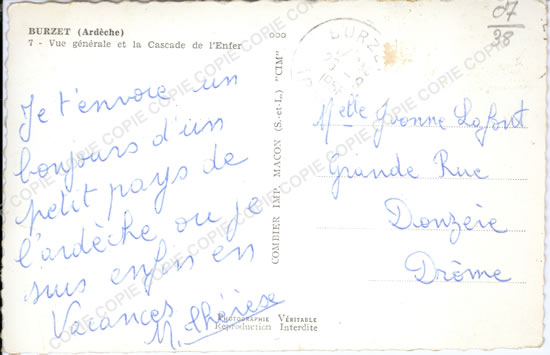 BURZET (Ardèche)
7 - Vue générale et la Cascade de l'Enfer
07
38
BURZE
Je t'envoie un
bonjours d'un
petit pays de
l'ardèche ou je
suis enfin en
Vacances
M. Thérèse
COMBIER IMP. MACON (S.-et-L.) "CIM"
Melle Yvonne Lafont
Grande Rue
Donzère
Drôme
PHOTOGRAPHIE VÉRITABLE
Reproduction Interdite
COPIE COPIE COPIE COPIE COPIE COPIE